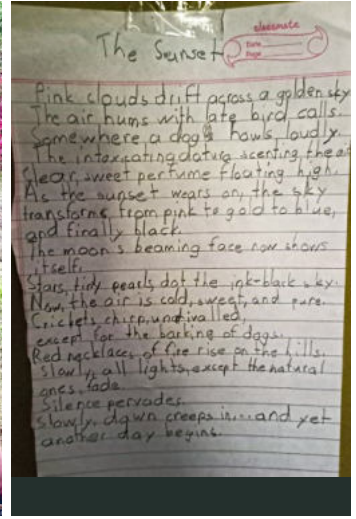 classmate
Date
Page
The Sunset
Pink clouds drift across a golden sky
The air hums with late bird calls.
Somewhere a dog howls loudly.
The intoxicating datura scenting the air
Clear, sweet perfume floating high.
As the sunset wears on, the sky
transforms, from pink to gold to blue,
and finally black.
The moon's beaming face now shows
itself.
Stars, tidy pearls, dot the ink-black sky.
Now, the air is cold, sweet, and pure.
Crickets chirp, unrivalled,
except for the barking of dogs.
Red necklaces of fire rise on the hills.
Slowly, all lights, except the natural
ones, fade.
Silence pervades.
Slowly, dawn creeps in....and yet
another day begins.